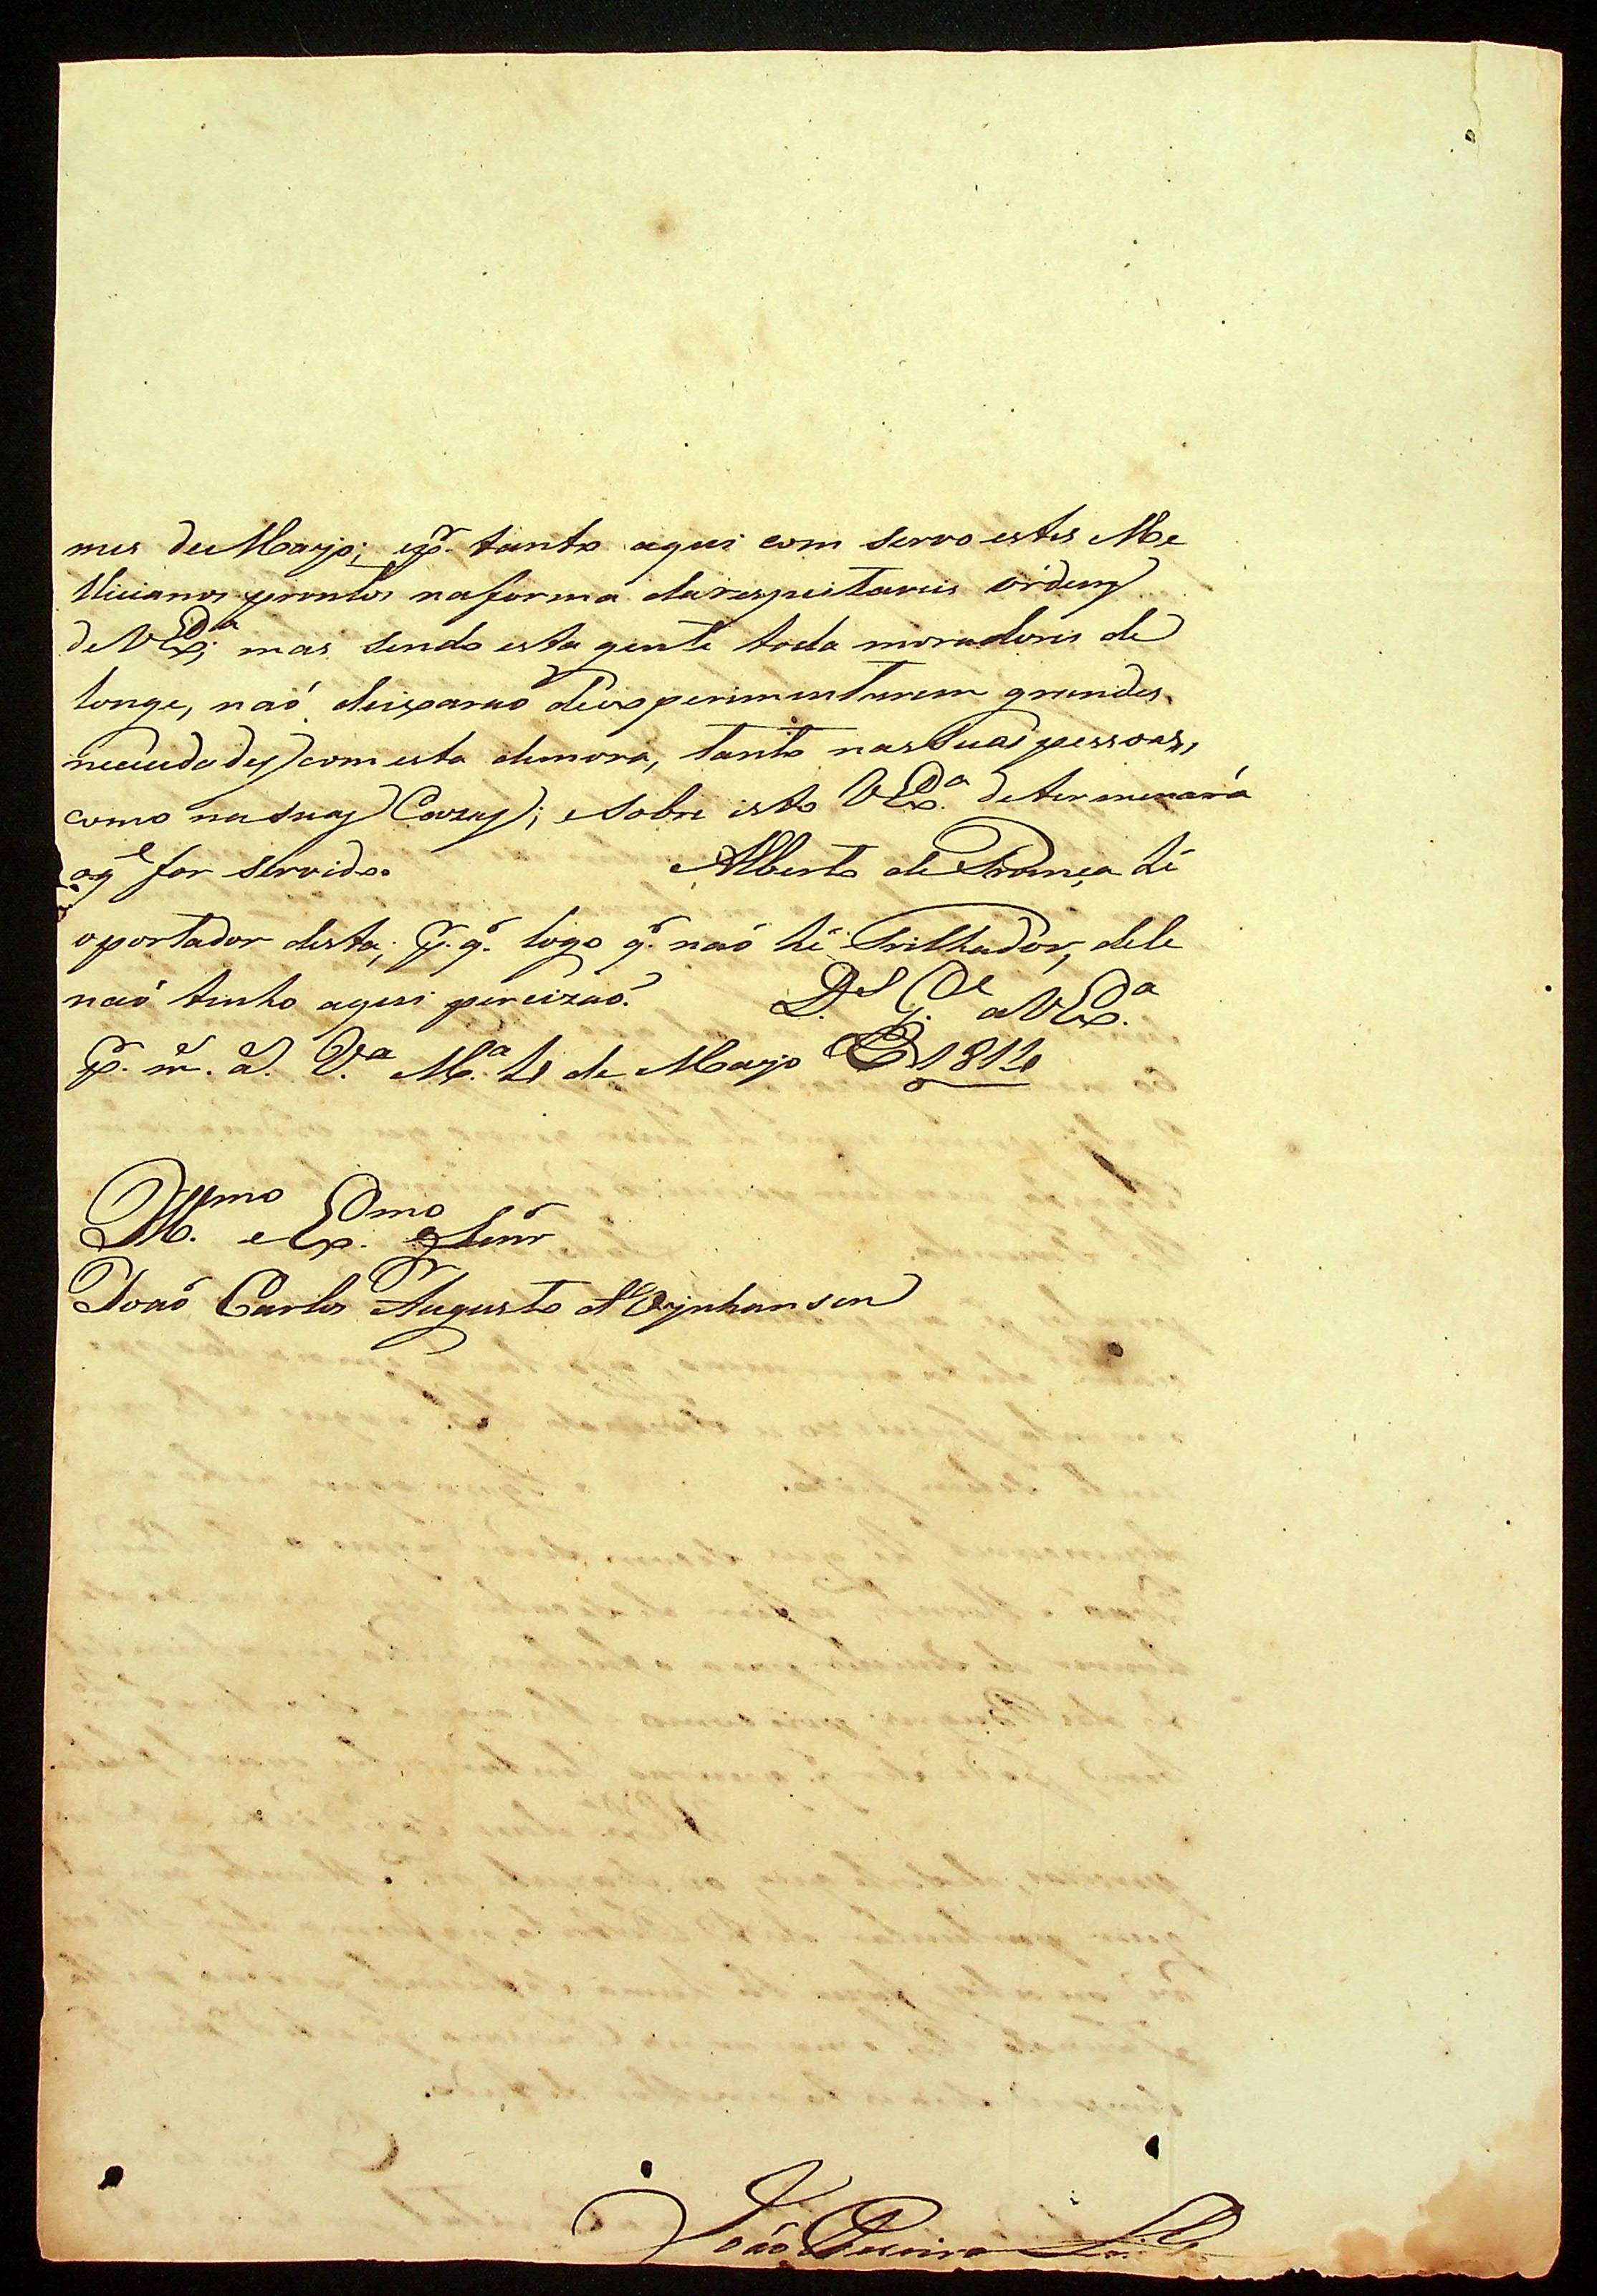 mes de Março; e pr. tanto aqui com servo estes Me
licianos prontos na forma da respeitaveis ordens
de V Exa; mas sendo esta gente toda moradores de
longe, naõ deixaraõ de experimentarem grandes
necicidades com esta demora, tanto nas suas pessoas,
como na suas Cazas; e sobre isto V Exa. determenará
o qe for servido. Alberto de França hé
o portador desta; pr. q. logo q. naõ hé Trilhador, dele
naõ tenho aqui percizaõ. Ds. Ge. a V Exa.
pr. ms. as. Va. Ma. de Março de
Illmo. e Exmo. Senr
Joaõ Carlos Augusto d'Oeynhansen
Joaõ Pereira